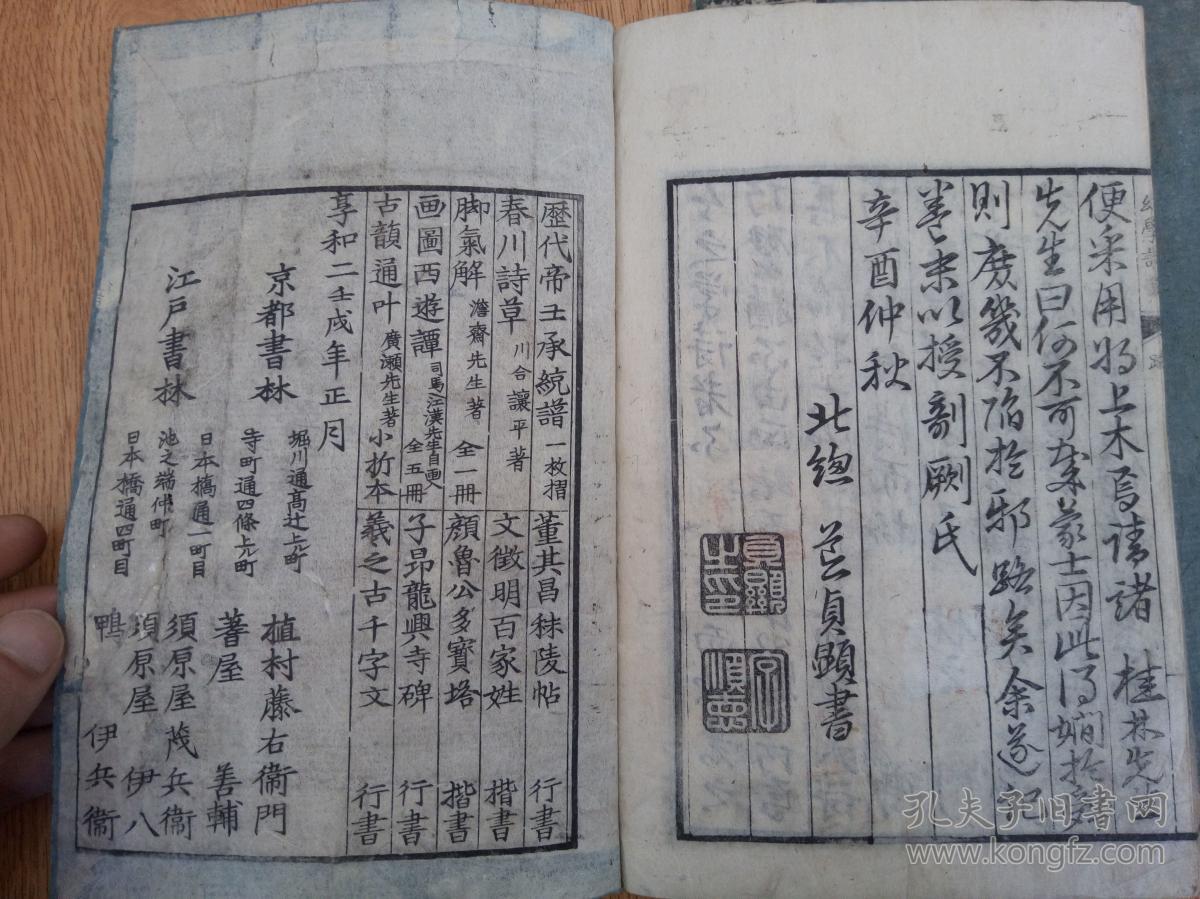 便采用将上木焉请諸 桂林先生
先生曰何不可蒙士因此得嫺於
則庶幾不陷於邪路矣余遂記
卷末以授剞劂氏
辛酉仲秋
北總 貞顕書
歴代帝王承統譜 一枚摺
春川詩草 川合讓平著
脚氣解 澹齋先生著 全一冊
画圖西遊譚 司馬江漢先生自画入 全五冊
古韻通叶 廣瀬先生著 小折本
董其昌秣陵帖 行書
文徴明百家姓 楷書
顔魯公多寶塔 楷書
子昂龍興寺碑 行書
羲之古千字文 行書
享和二壬戌年正月
京都書林
堀川通髙辻上ル町 植村藤右衛門
寺町通四條上ル町 蓍屋善輔
江戸書林
日本橋通一町目 須原屋茂兵衛
池之端仲町 須原屋伊八
日本橋通四町目 鴨伊兵衞
孔夫子旧书网
www.kongfz.com